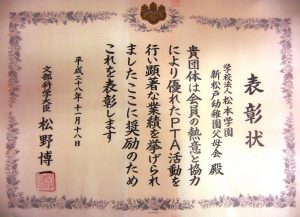 表彰状
学校法人松本学園
新松戸幼稚園父母会 殿
貴団体は会員の熱意と協力
により優れたPTA活動を
行い顕著な業績を挙げられ
ました ここに奨励のため
これを表彰します
平成二八年十一月十八日
文部科学大臣 松野博